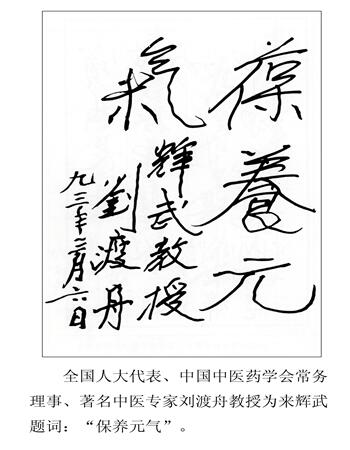 葆養元
氣
輝武教授
劉渡舟
九三年三月六日
全国人大代表、中国中医药学会常务
理事、著名中医专家刘渡舟教授为来辉武
题词：“保养元气”。